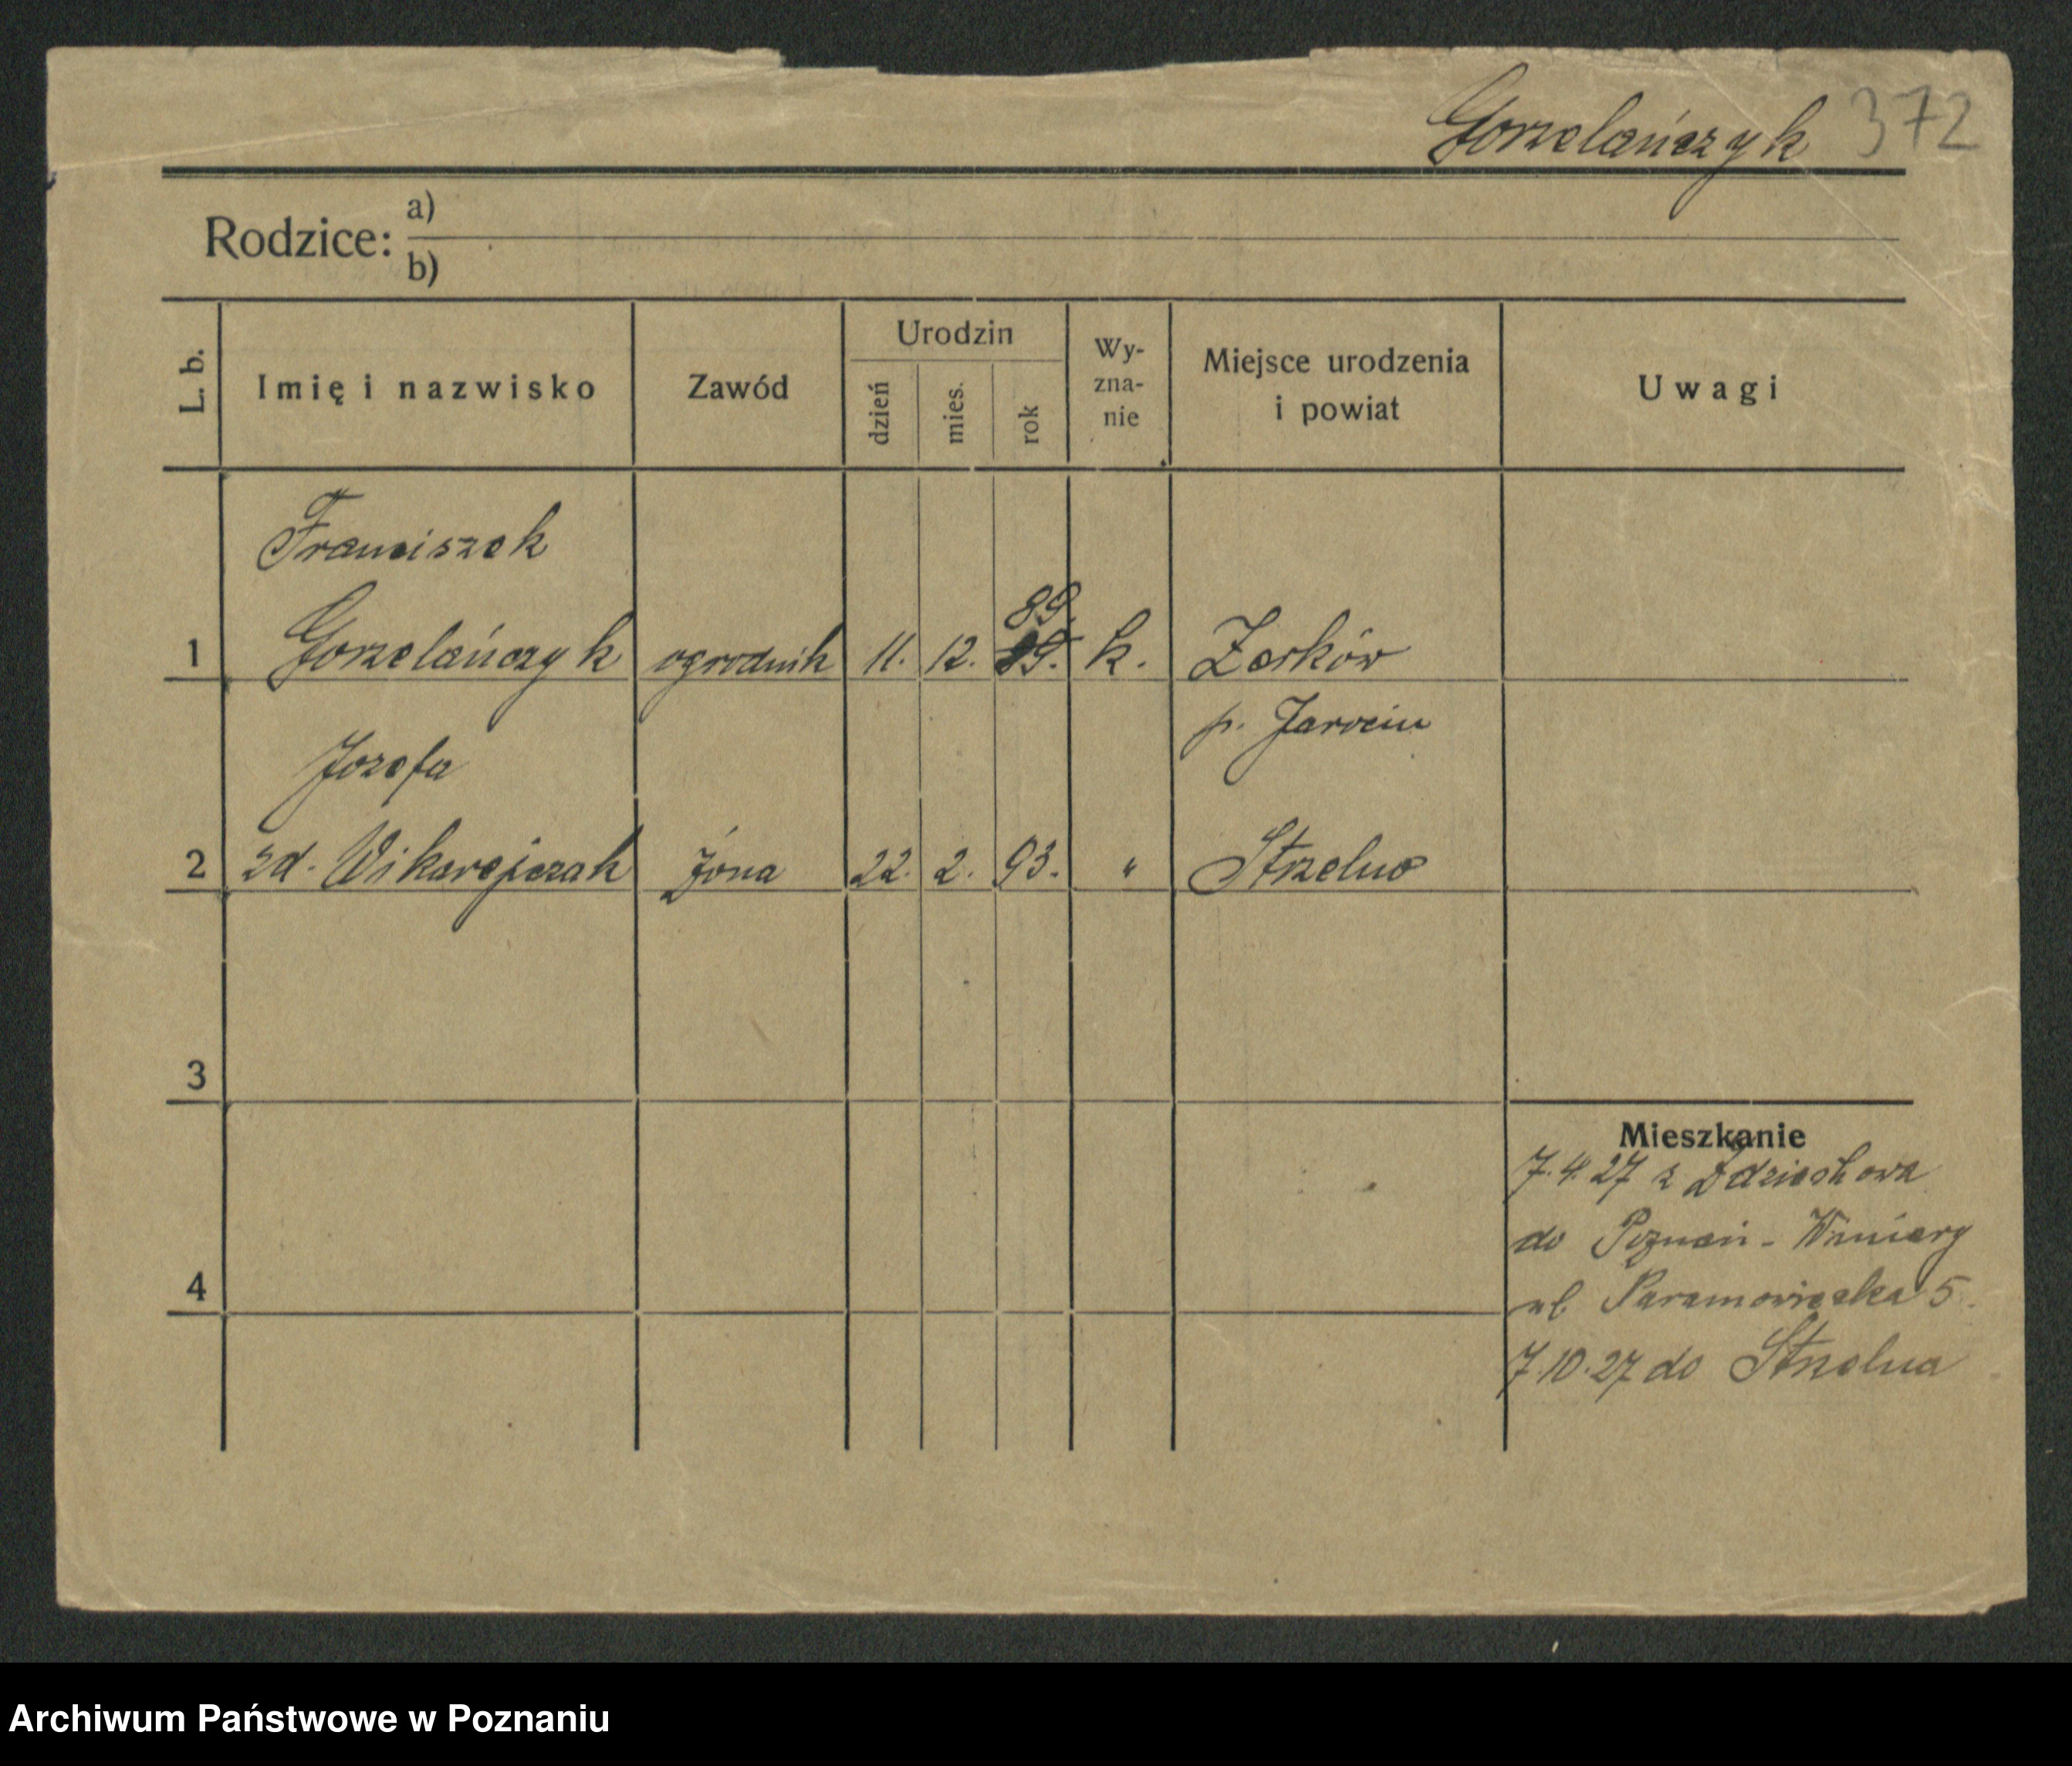 Gorzelańczyk 372
Rodzice: a)
b)
L. b. Imię i nazwisko Zawód Urodzin dzień mies. rok Wy-zna-nie Miejsce urodzenia i powiat Uwagi
Franciszek
89.
1 Gorzelańczyk ogrodnik 11. 12. k. Zerków
p. Jarocin
Jozefa
2 zd. Wikarejczak żona 22. 2. 93. " Strzelno
3
Mieszkanie
7.4.27 z Zdziechowa
do Poznań - Winiary
4
ul. 5.
7.10.27 do Strzelna
Archiwum Państwowe w Poznaniu